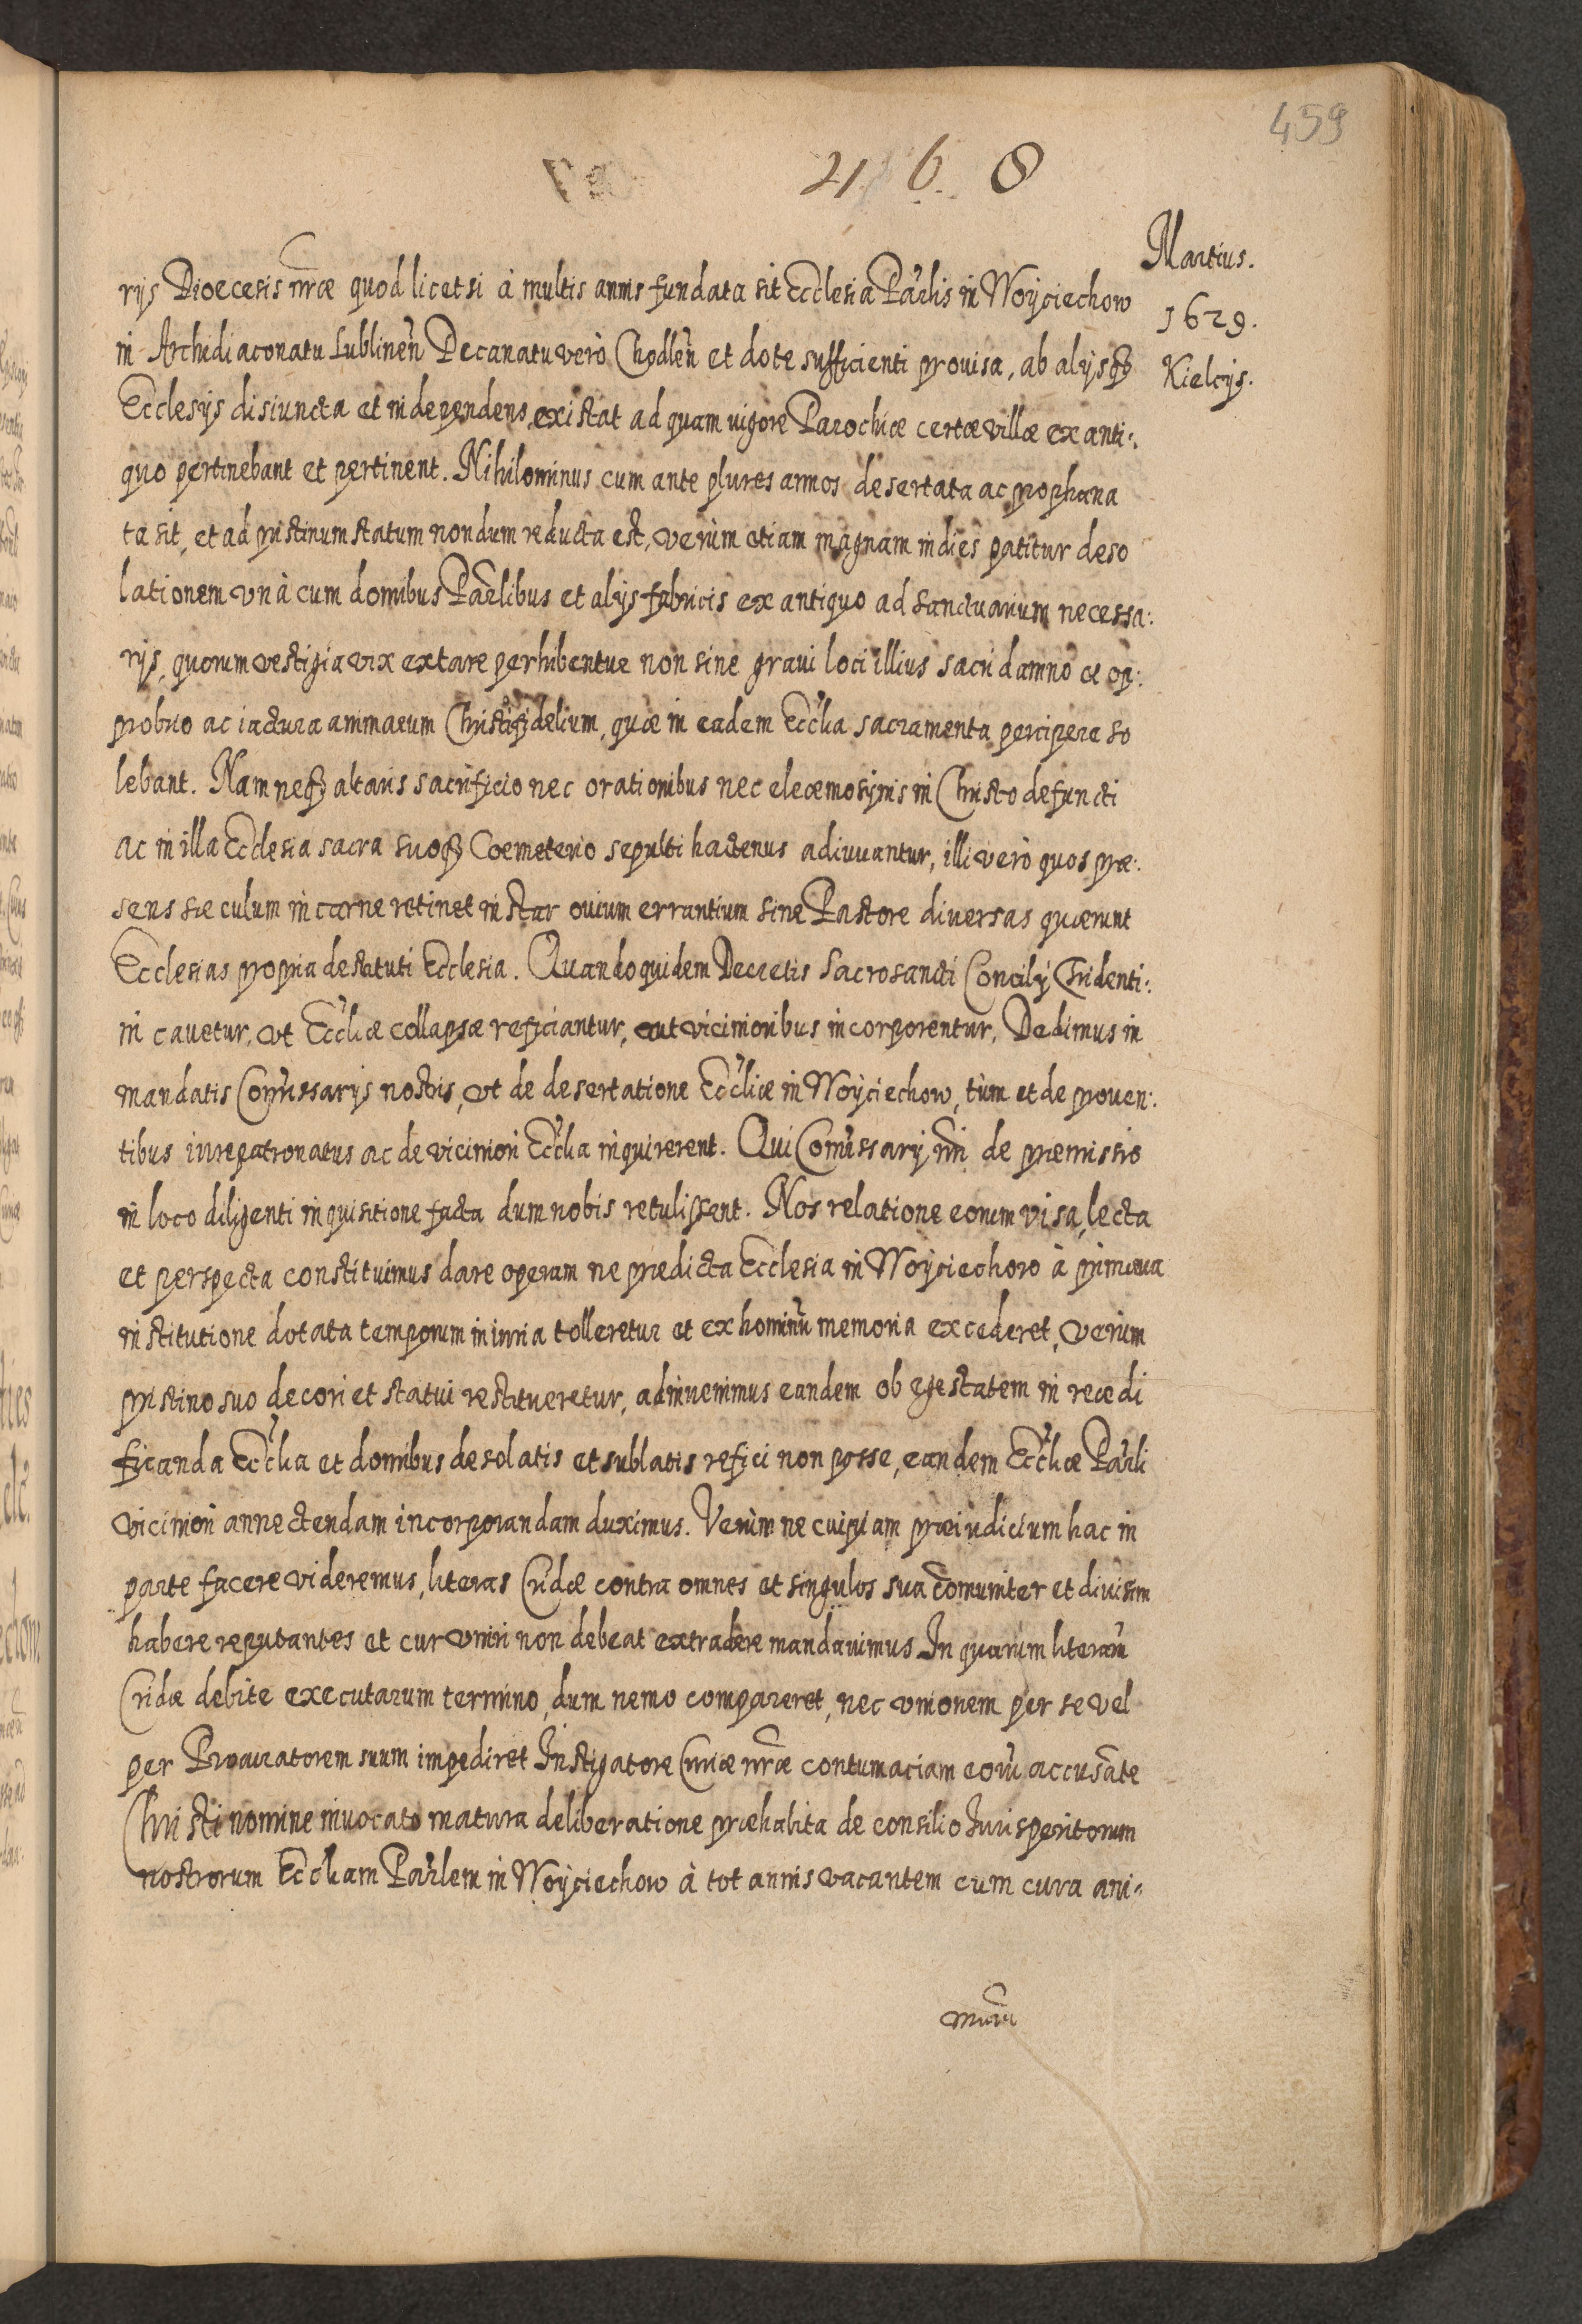 459
21 6 8
Martius.
1629.
Kielcijs.
rijs Dioecesis nr̃æ quod licet si à multis annis fundata sit Ecclesia Par̃lis in Woyciechow
in Archidiaconatu Lublineñ Decanatu verò Chodleñ et dote sufficienti prouisa, ab alijsqȝ
Ecclesijs disiuncta et independens existat ad quam uigore Parochiæ certæ villæ ex anti:
quo pertinebant et pertinent. Nihilominus cum ante plures annos desertata ac prophana
ta sit, et ad pristinum statum nondum reducta est, verùm etiam magnam indies patitur deso
lationem vnà cum domibus Par̃libus et alijs fabricis ex antiquo ad Sanctuarium necessa:
rijs, quorum vestigia vix extare perhibentur non sine graui loci illius sacri damno et op:
probrio ac iactura animarum Christifidelium, quæ in eadem Eccl̃ia sacramenta percipere so
lebant. Nam neqȝ altaris sacrificio nec orationibus nec eleemosijnis in Christo defuncti
ac in illa Ecclesia sacra suoqȝ Coemeterio sepulti hactenus adiuuantur, illi verò quos præ:
sens sæculum in carne retinet instar ouium errantium sine Pastore diuersas quærunt
Ecclesias propria destituti Ecclesia. Quandoquidem Decretis Sacrosancti Concilij Tridenti:
ni cauetur, vt Eccl̃iæ collapsæ reficiantur, aut vicinioribus incorporentur, Dedimus in
mandatis Com̃issarijs nostris, vt de desertatione Eccl̃iæ in Woyciechow, tùm et de prouen:
tibus iurepatronatus ac de viciniori Eccl̃ia inquirerent. Qui Com̃issarij nr̃i de præmissis
in loco diligenti inquisitione facta dum nobis retulissent. Nos relatione eorum visa, lecta
et perspecta constituimus dare operam ne prædicta Ecclesia in Woyciechow à primæua
institutione dotata temporum iniuria tolleretur et ex hominũ memoria excederet, verùm
pristino suo decori et statui restitueretur, adinuenimus eandem ob egestatem in reædi
ficanda Eccl̃ia et domibus desolatis et sublatis refici non posse, eandem Eccl̃iæ Par̃li
viciniori annectendam incorporandam duximus. Verùm ne cuipiam præiudicium hac in
parte facere videremus, literas Cridæ contra omnes et singulos sua com̃uniter et diuisim
habere reputantes et cur vniri non debeat extradere mandauimus. In quarum literarũ
Cridæ debite executarum termino, dum nemo compareret, nec vnionem per se vel
per Procuratorem suum impediret Instigatore Curiæ nr̃æ contumaciam eorũ accusãte
Christi nomine inuocato matura deliberatione præhabita de consilio Iurisperitorum
nostrorum Eccl̃iam Par̃lem in Woyciechow à tot annis vacantem cum cura ani:
marũ